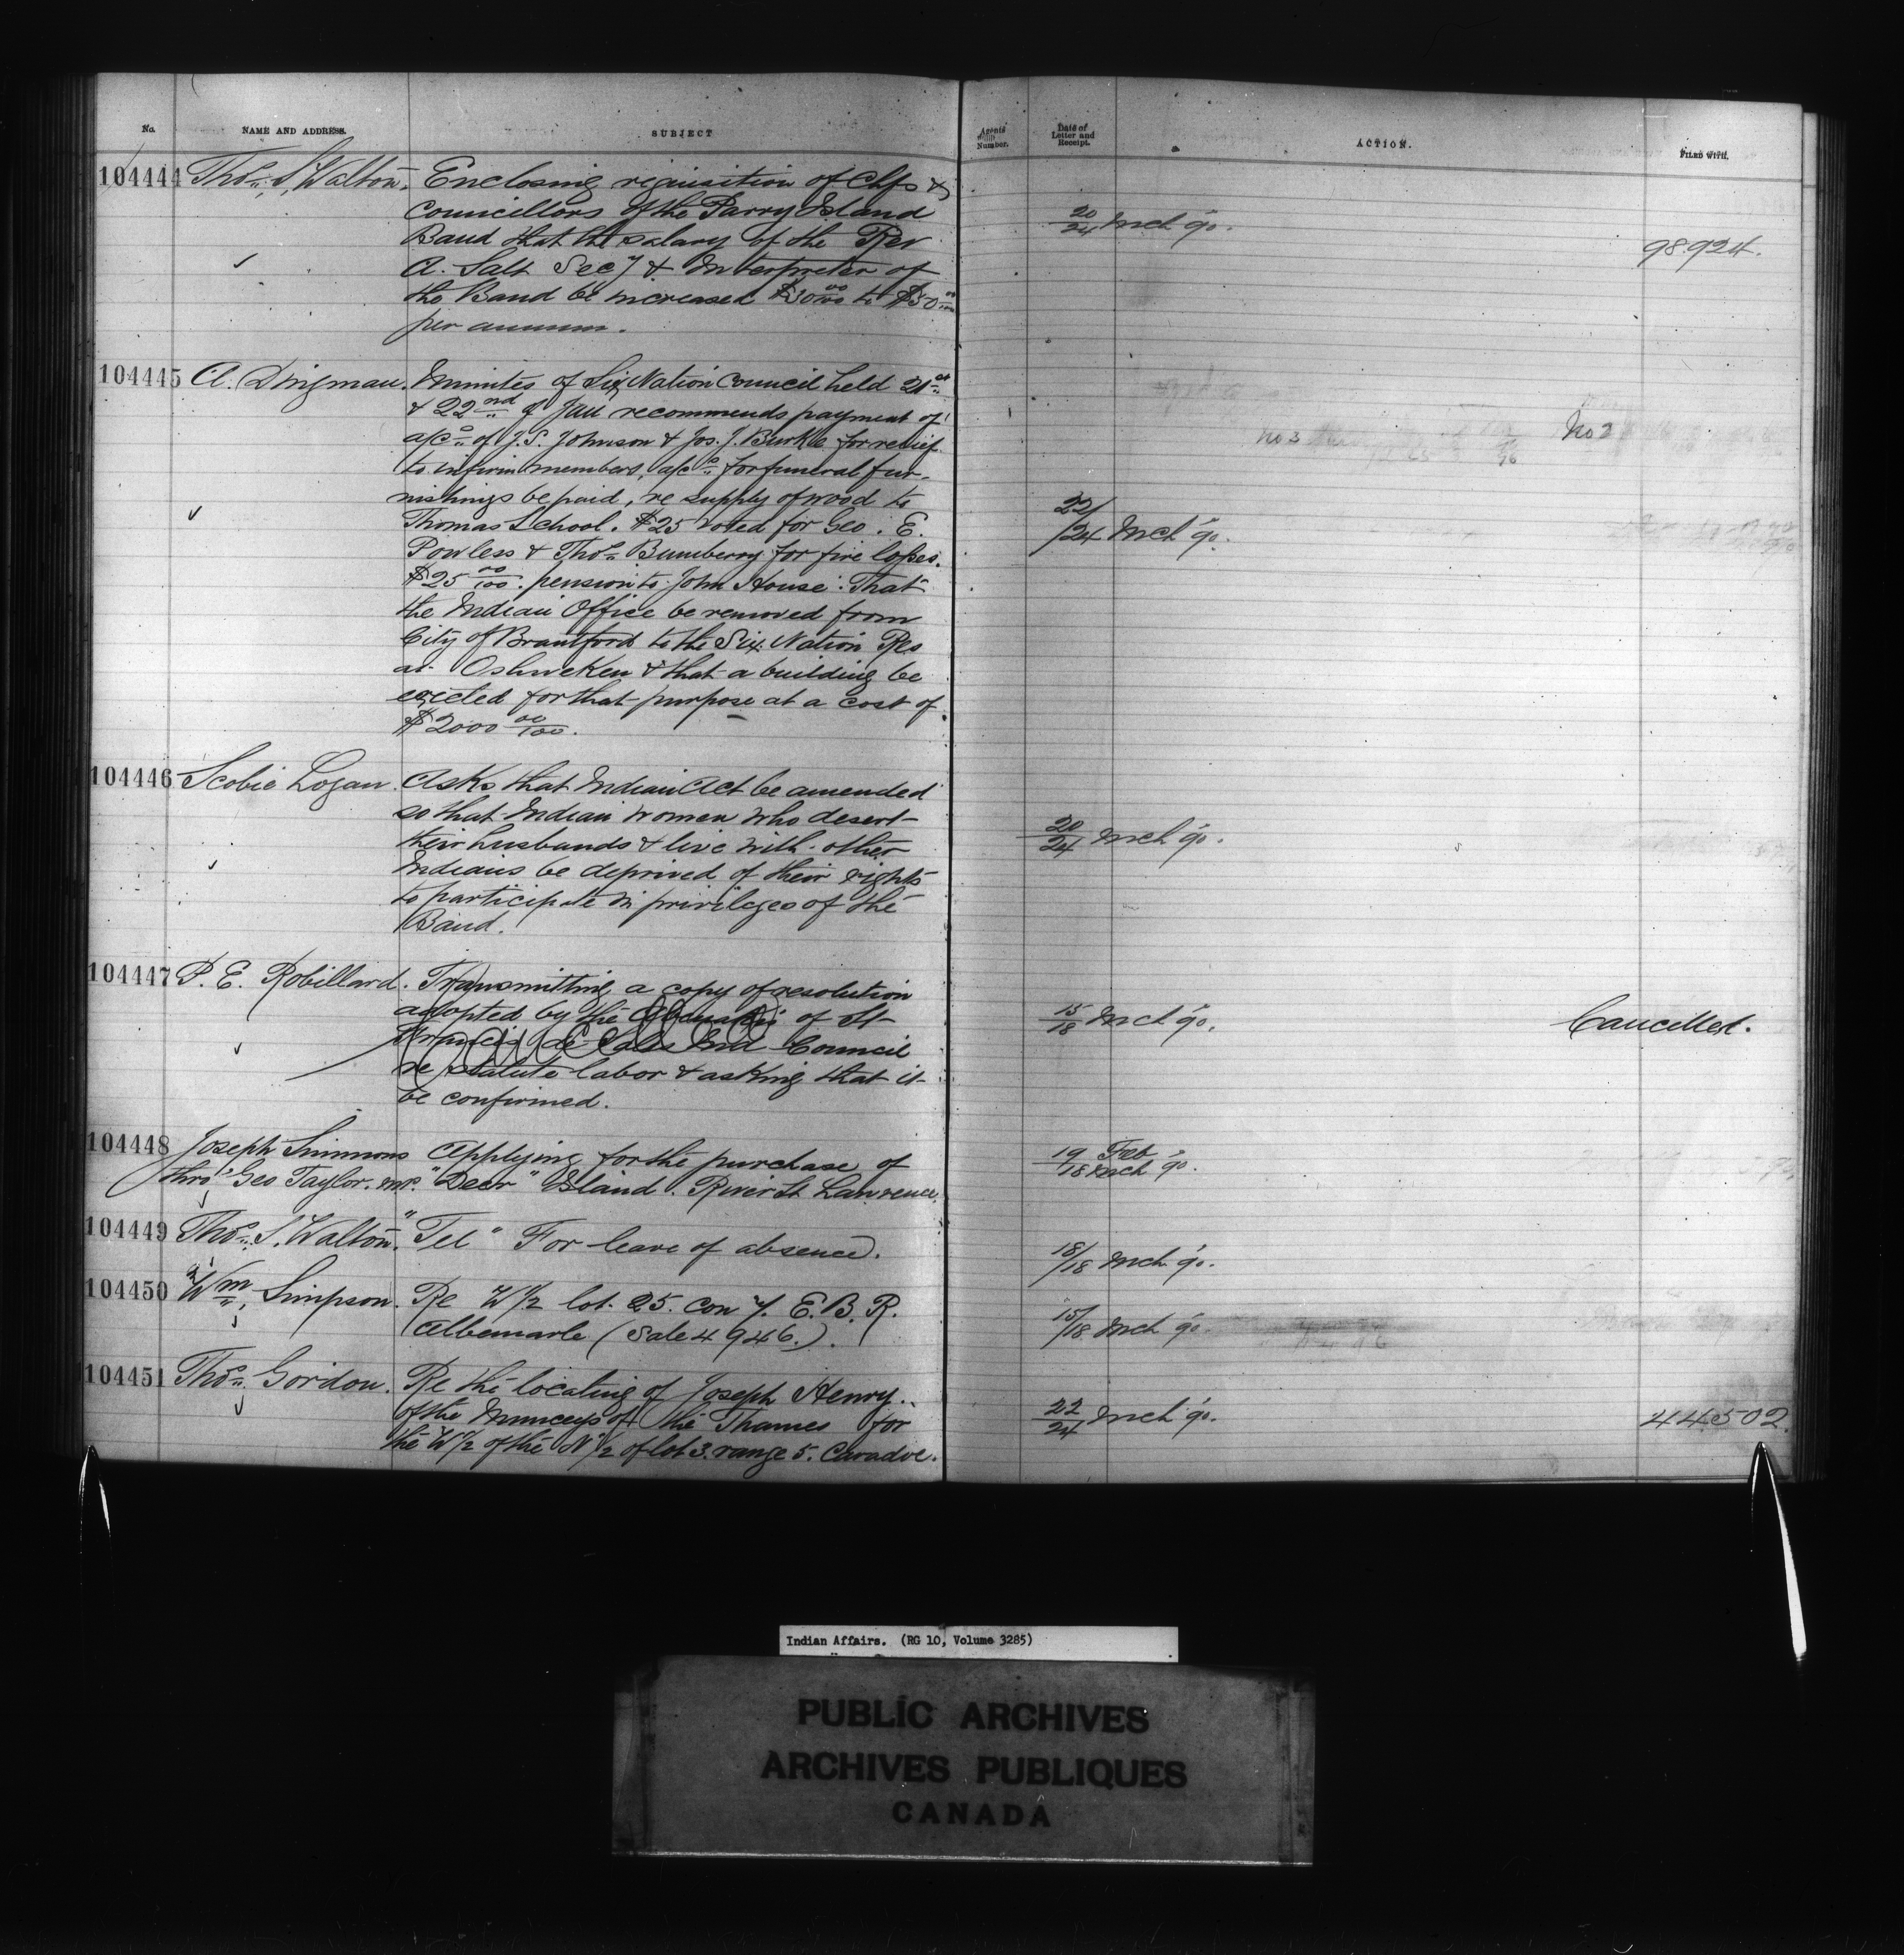 No. NAME AND ADDRESS. SUBJECT Agents Number. Date of Letter and Receipt. ACTION. FILED WITH.
104444 Thos. S. Walton. Enclosing requisition of Chfs &
Councillors of the Parry Island
Band that the salary of the Rev
A. Salt Secy & Interpreter of
the Band be increased $30 00/100 to $50 00/100
per annum.
20/24 Mch '90.
98.924.
104445 A. Dingman. Minutes of Six Nation Council held 21st
& 22nd of Jan recommends payment of
a/cs of J.S. Johnson & Jos. J. Burke for relief
to infirm members, a/cs for funeral fur-
nishings be paid, re supply of wood to
Thomas School. $25 voted for Geo. E.
Powless & Thos. Bumberry for fire losses.
$25 00/100. pension to John House. That
the Indian Office be removed from
City of Brantford to the Six Nation Res
at Oshweken & that a building be
erected for that purpose at a cost of
$2000 00/100.
22/24 Mch '90.
No 3
No 2
104446 Scobie Logan. Asks that Indian Act be amended
so that Indian women who desert
their husbands & live with other
Indians be deprived of their rights
to participate in privileges of the
Band.
20/24 Mch '90.
104447 P. E. Robillard. Transmitting a copy of resolution
adopted by the Abenakis of St
Francis de Sales Ind Council
re statute labor & asking that it
be confirmed.
Cancelled
15/18 Mch '90.
Cancelled.
104448 Joseph Simmons Applying for the purchase of
thro' Geo Taylor. M.P. "Deer" Island. River St Lawrence.
19 Feb
18 Mch '90.
104449 Thos. S. Walton. "Tel" For leave of absence.
18/18 Mch '90.
104450 Wm. Simpson. Re W 1/2 lot. 25. Con 7. E.B.R.
Albemarle (Sale 4946.).
15/18 Mch '90.
104451 Thos. Gordon. Re the locating of Joseph Henry.
of the Munceys of the Thames for
the W 1/2 of the N 1/2 of lot 3. range 5. Caradoc.
22/24 Mch '90.
44502.
Indian Affairs. (RG 10, Volume 3285)
PUBLIC ARCHIVES
ARCHIVES PUBLIQUES
CANADA